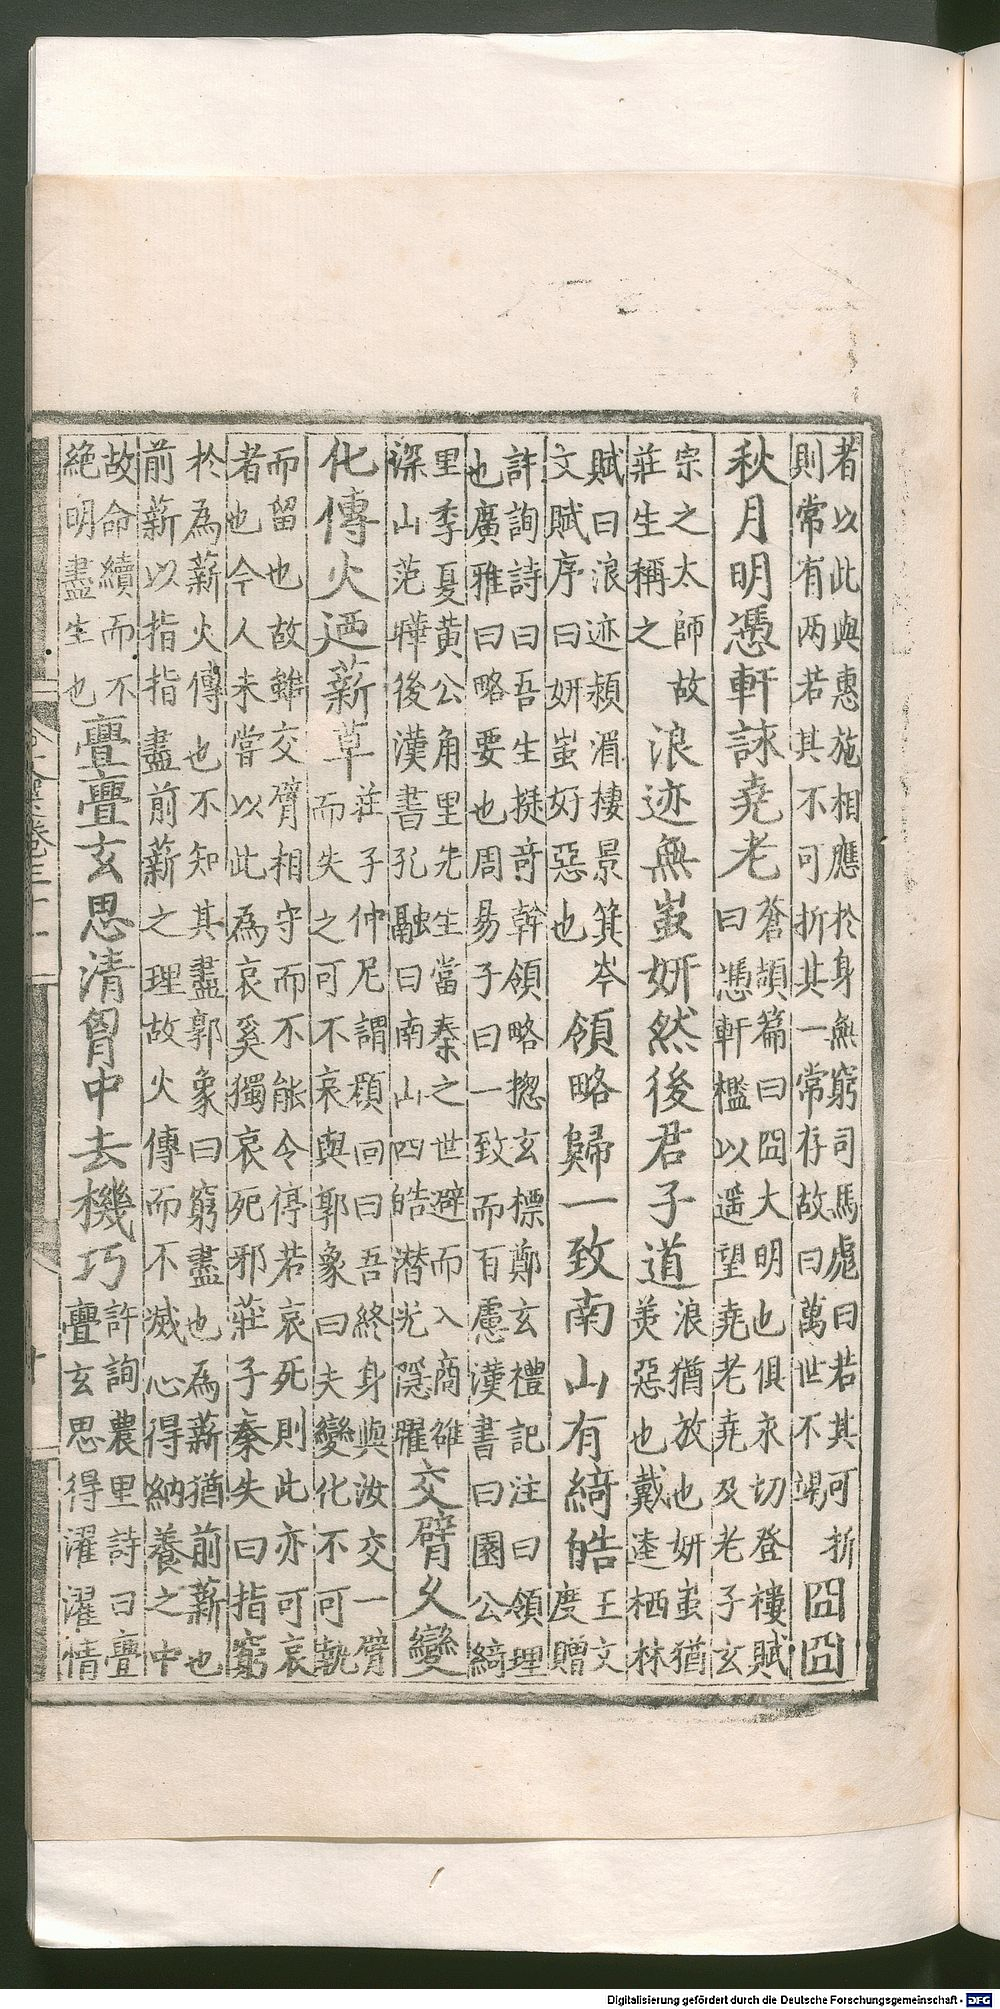 者以此與惠施相應於身無窮司馬彪曰若其可折
則常有两若其不可折其一常存故曰萬世不竭
囧囧
秋月明憑軒詠堯老
蒼頡篇曰囧大明也俱永切登樓賦
曰憑軒檻以遥望堯老堯及老子玄
宗之太師故
莊生稱之
浪迹無蚩妍然後君子道
浪猶放也妍蚩猶
美惡也戴逵栖林
賦曰浪迹潁湄棲景箕岑
文賦序曰妍蚩好惡也
領略歸一致南山有綺皓
王文
度贈
許詢詩曰吾生挺奇幹領略揔玄標鄭玄禮記注曰領理
也廣雅曰略要也周易子曰一致而百慮漢書曰園公綺
里季夏黄公角里先生當秦之世避而入商雒
深山范曄後漢書孔融曰南山四皓潜光隱耀
交臂久變
化傳火迺薪草
莊子仲尼謂顔回曰吾終身與汝交一臂
而失之可不哀與郭象曰夫變化不可執
而留也故雖交臂相守而不能令停若哀死則此亦可哀
者也今人未嘗以此為哀奚獨哀死邪莊子秦失曰指窮
於為薪火傳也不知其盡郭象曰窮盡也為薪猶前薪也
前薪以指指盡前薪之理故火傳而不滅心得納養之中
故命續而不
絶明盡生也
亹亹玄思清胷中去機巧
許詢農里詩曰亹
亹玄思得濯濯情
Digitalisierung gefördert durch die Deutsche Forschungsgemeinschaft - DFG